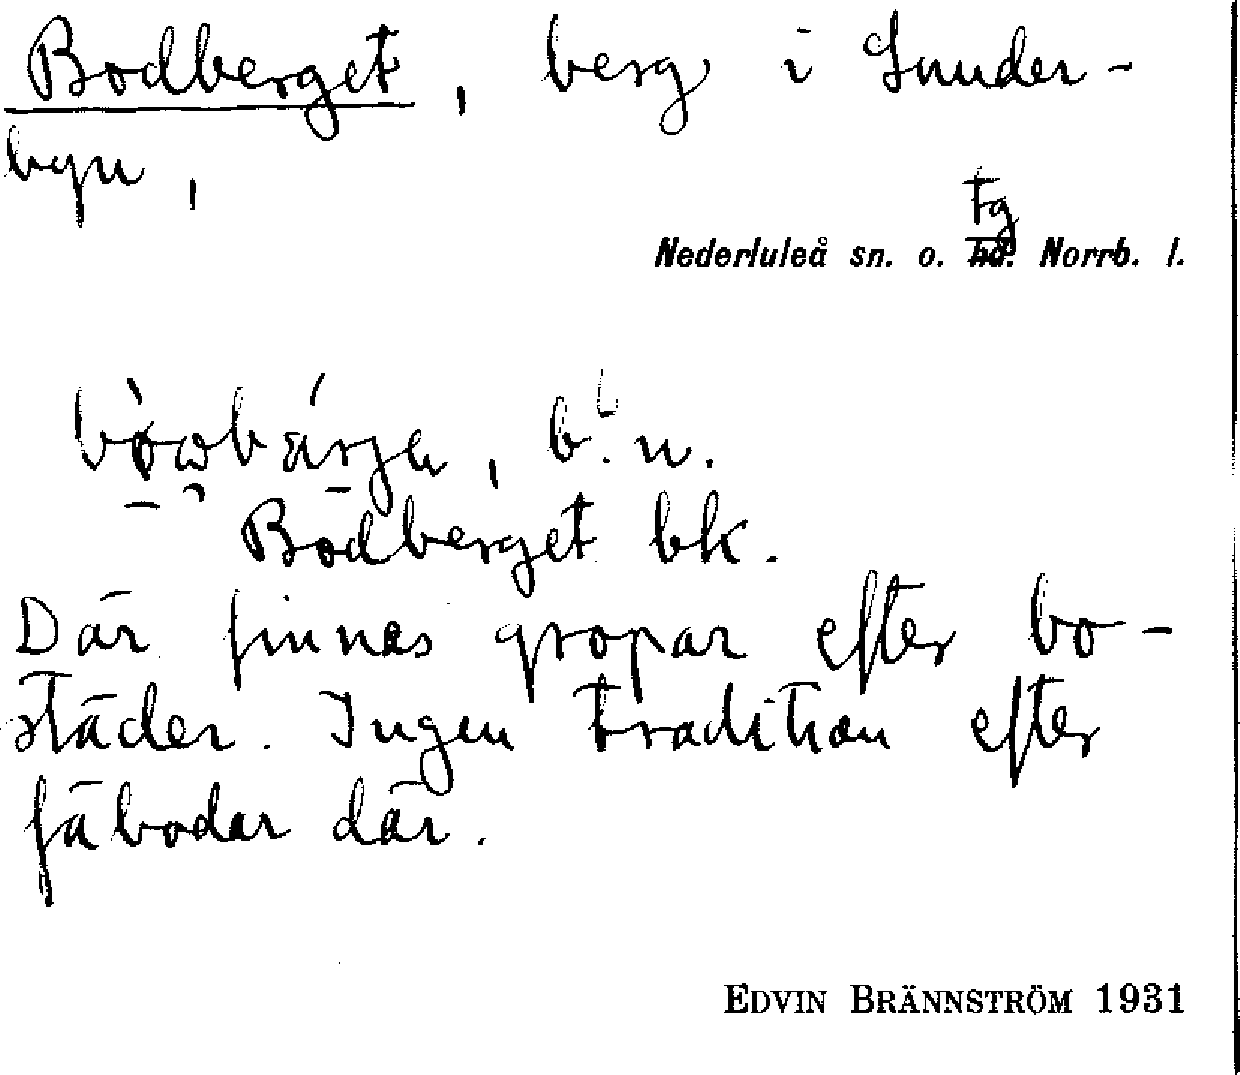 Bodberget, berg i Sunder-
byn,
tg
Nederluleå sn. o. hd. Norrb. l.
b. u.
Bodberget bk.
Där finnes gropar efter bo-
städer. Ingen tradition efter
fäbodar där.
EDVIN BRÄNNSTRÖM 1931